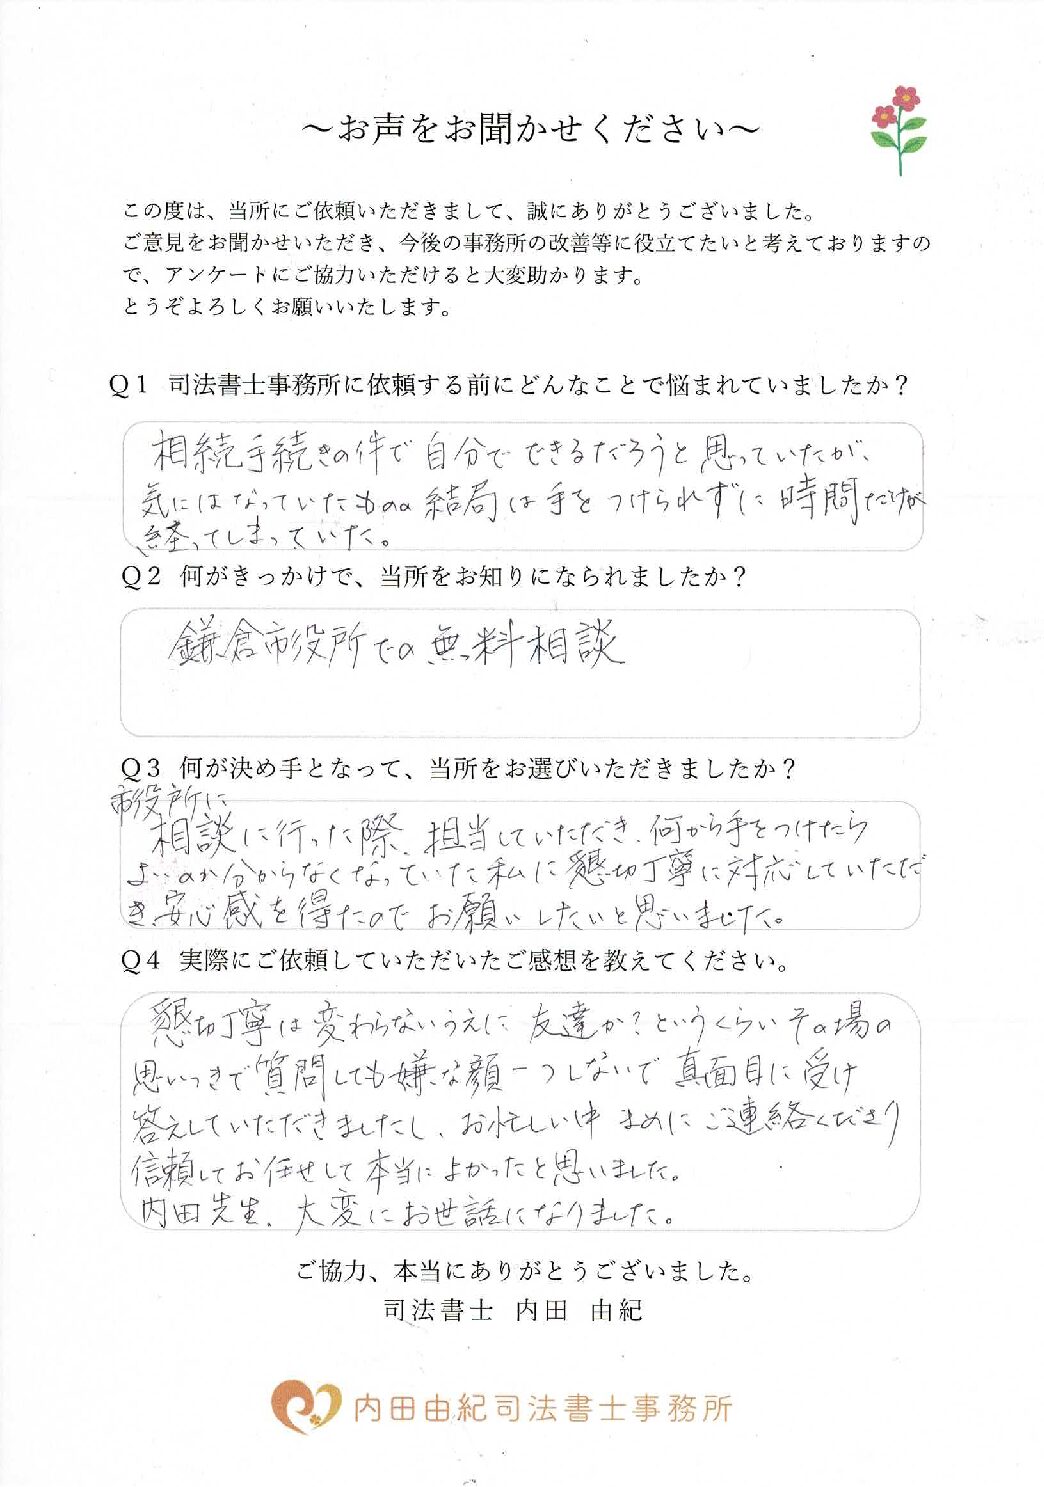 ～お声をお聞かせください～
この度は、当所にご依頼いただきまして、誠にありがとうございました。
ご意見をお聞かせいただき、今後の事務所の改善等に役立てたいと考えておりますの
で、アンケートにご協力いただけると大変助かります。
とうぞよろしくお願いいたします。
Q１ 司法書士事務所に依頼する前にどんなことで悩まれていましたか？
相続手続きの件で自分でできるだろうと思っていたが、
気にはなっていたものの結局は手をつけられずに時間だけが
経ってしまっていた。
Q２ 何がきっかけで、当所をお知りになられましたか？
鎌倉市役所での無料相談
Q３ 何が決め手となって、当所をお選びいただきましたか？
市役所に
相談に行った際、担当していただき、何から手をつけたら
よいのか分からなくなっていた私に懇切丁寧に対応していただ
き、安心感を得たのでお願いしたいと思いました。
Q４ 実際にご依頼していただいたご感想を教えてください。
懇切丁寧は変わらないうえに友達か？というくらいその場の
思いつきで質問しても嫌な顔一つしないで真面目に受け
答えしていただきましたし、お忙しい中まめにご連絡くださり
信頼してお任せして本当によかったと思いました。
内田先生、大変にお世話になりました。
ご協力、本当にありがとうございました。
司法書士 内田 由紀
内田由紀司法書士事務所